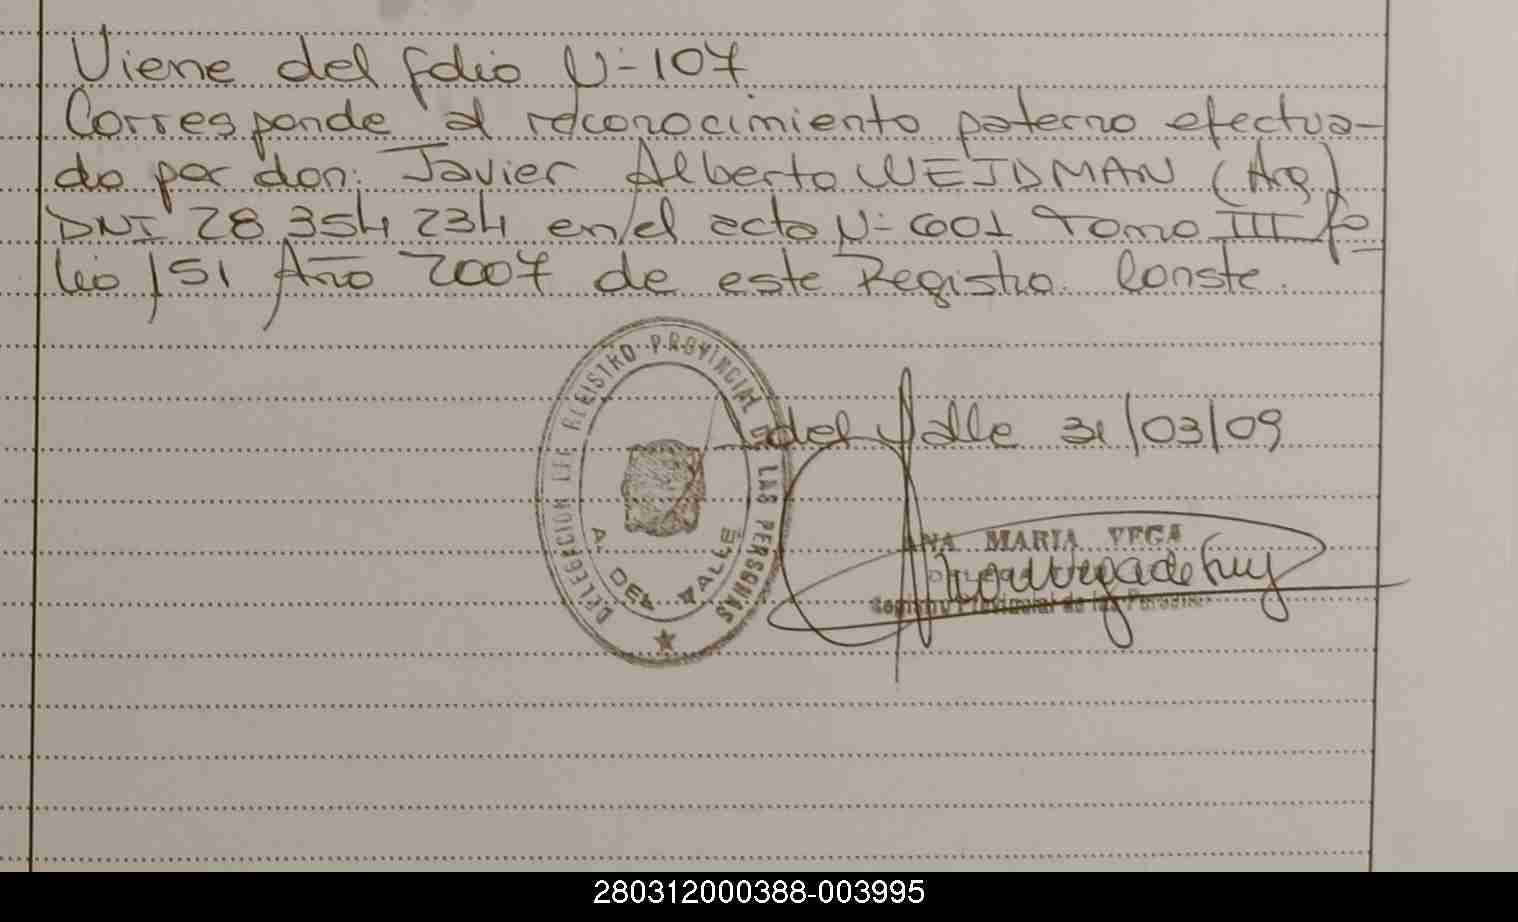 Viene del folio N- 107
Corresponde al reconocimiento paterno efectua-
do por don: Javier Alberto WEIDMAN (Arg)
DNI 28 354 234 en el acta N- 601 Tomo III fo
lio 151 Año 2007 de este Registro. Conste.
DELEGACION DEL REGISTRO PROVINCIAL DE LAS PERSONAS
A. DEL VALLE
A. del Valle 31/03/09
ANA MARIA VEGA
Registro Provincial de las Personas
280312000388-003995